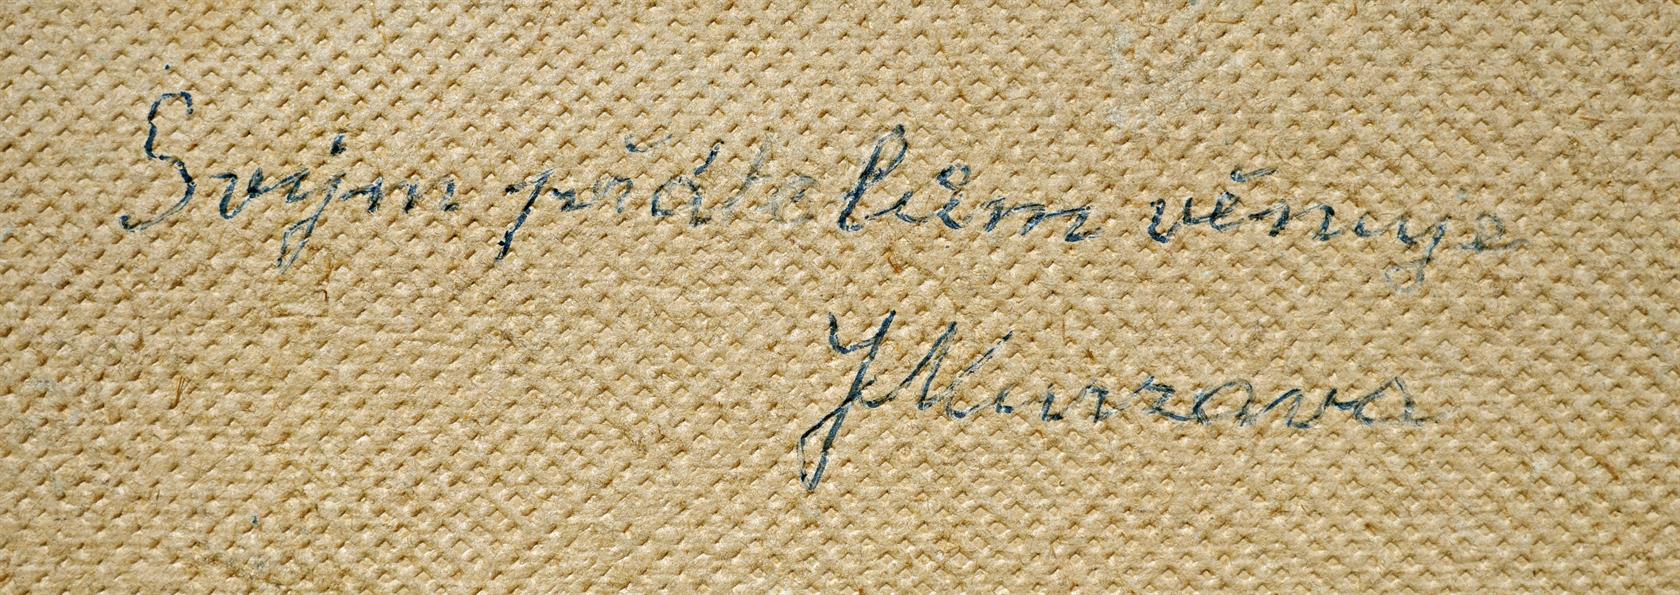 Svým přátelům věnuje
J Murzava